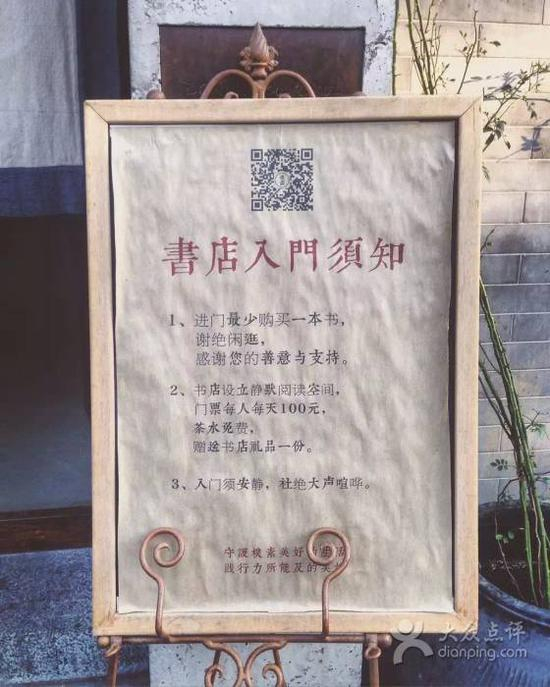 書店入門須知
1、进门最少购买一本书，
谢绝闲逛，
感谢您的善意与支持。
2、书店设立静默阅读空间，
门票每人每天100元，
茶水免费，
赠送书店礼品一份。
3、入门须安静，杜绝大声喧哗。
守護樸素美好
践行力所能及的
大众点评
dianping.com